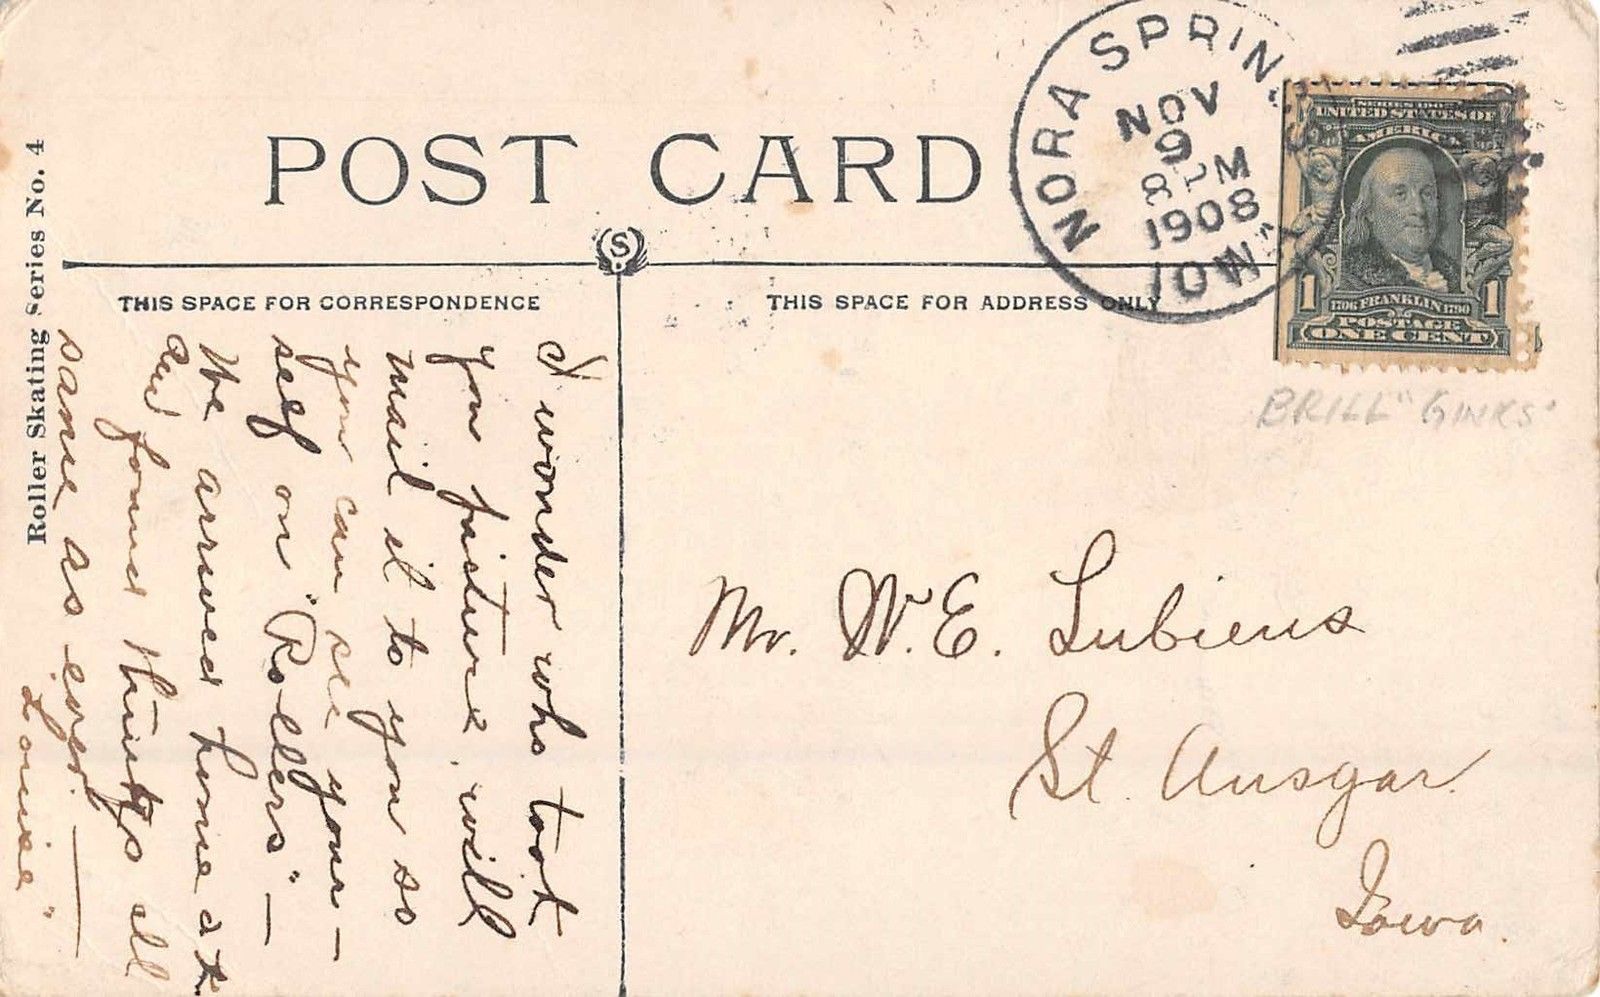 Roller Skating Series No. 4
POST CARD
S
THIS SPACE FOR CORRESPONDENCE
THIS SPACE FOR ADDRESS ONLY
NORA SPRIN
IOW
NOV
9
8 PM
1908
SERIES 1902
UNITED STATES OF
AMERICA
1706 FRANKLIN 1790
1 1
POSTAGE
ONE CENT
BRILL "GINKS"
I wonder who took
you picture, will
mail it to you so
you can see your-
self on "Rollers" —
We arrived home at
and found things all
same as ever. —
Louise"
Mr. W. E. Lubiens
St. Ansgar.
Iowa.